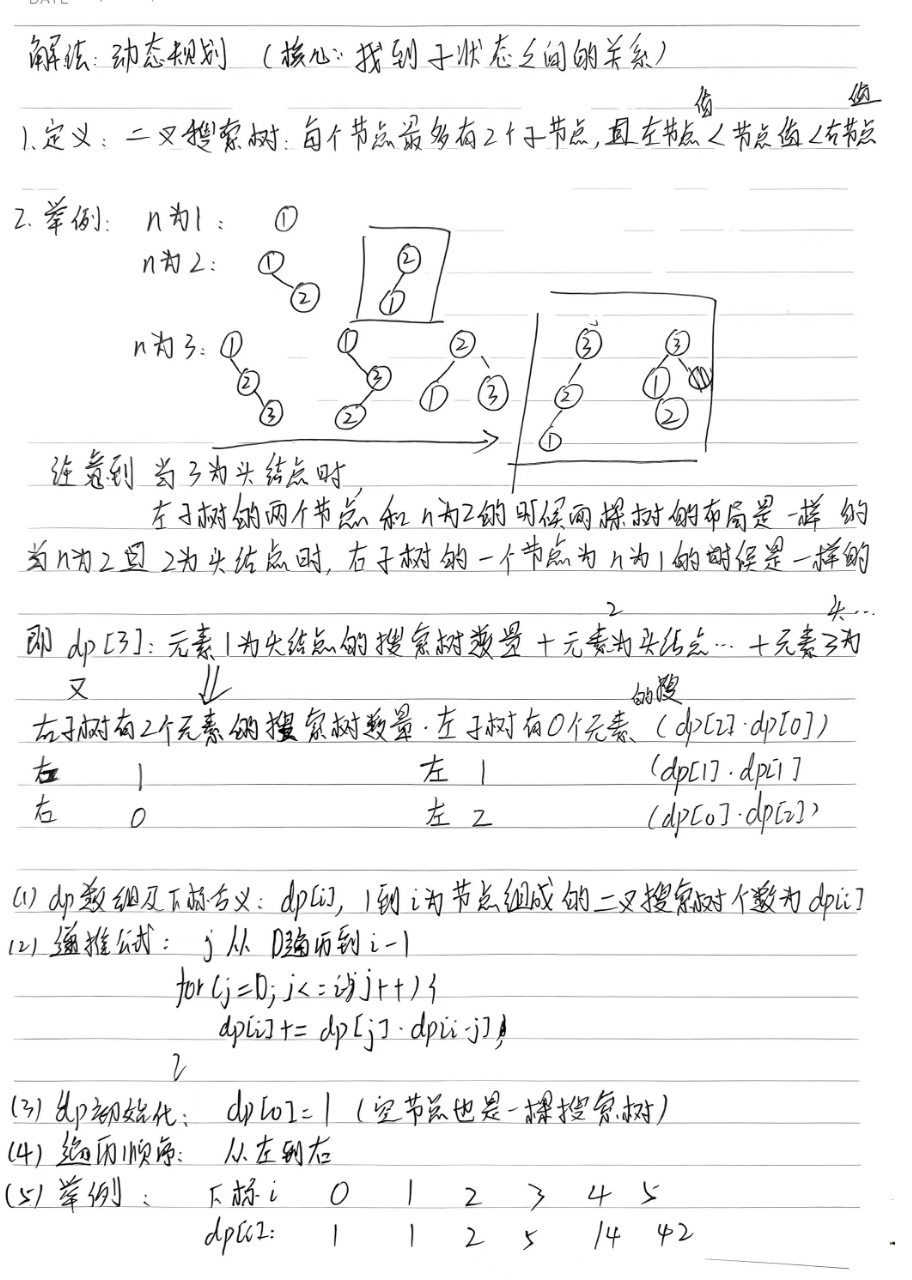 DATE
解法: 动态规划 (核心: 找到子状态之间的关系)
1.定义: 二叉搜索树: 每个节点最多有2个子节点, 且左节点值<节点值<右节点值
2.举例: n为1: ①
n为2: ① ② ② ①
n为3: ① ① ② ③ ③
② ③ ① ③ ② ①
③ ② ① ②
注意到 当3为头结点时,
左子树的两个节点和n为2的时候两棵树的布局是一样的
当n为2且2为头结点时, 右子树的一个节点为n为1的时候是一样的
即 dp[3]: 元素1为头结点的搜索树数量+元素2为头结点…+元素3为头…
又 ⇓
右子树有2个元素的搜索树数量·左子树有0个元素的搜 (dp[2]·dp[0])
右 1 左 1 (dp[1]·dp[1]
右 0 左 2 (dp[0]·dp[2])
(1) dp数组及下标含义: dp[i], 1到i为节点组成的二叉搜索树个数为dp[i]
(2) 递推公式: j从0遍历到i-1
for(j=0; j<=i; j++){
dp[i]+= dp[j]·dp[i-j];
}
(3) dp初始化: dp[0]=1 (空节点也是一棵搜索树)
(4) 遍历顺序: 从左到右
(5) 举例: 下标i 0 1 2 3 4 5
dp[i]: 1 1 2 5 14 42